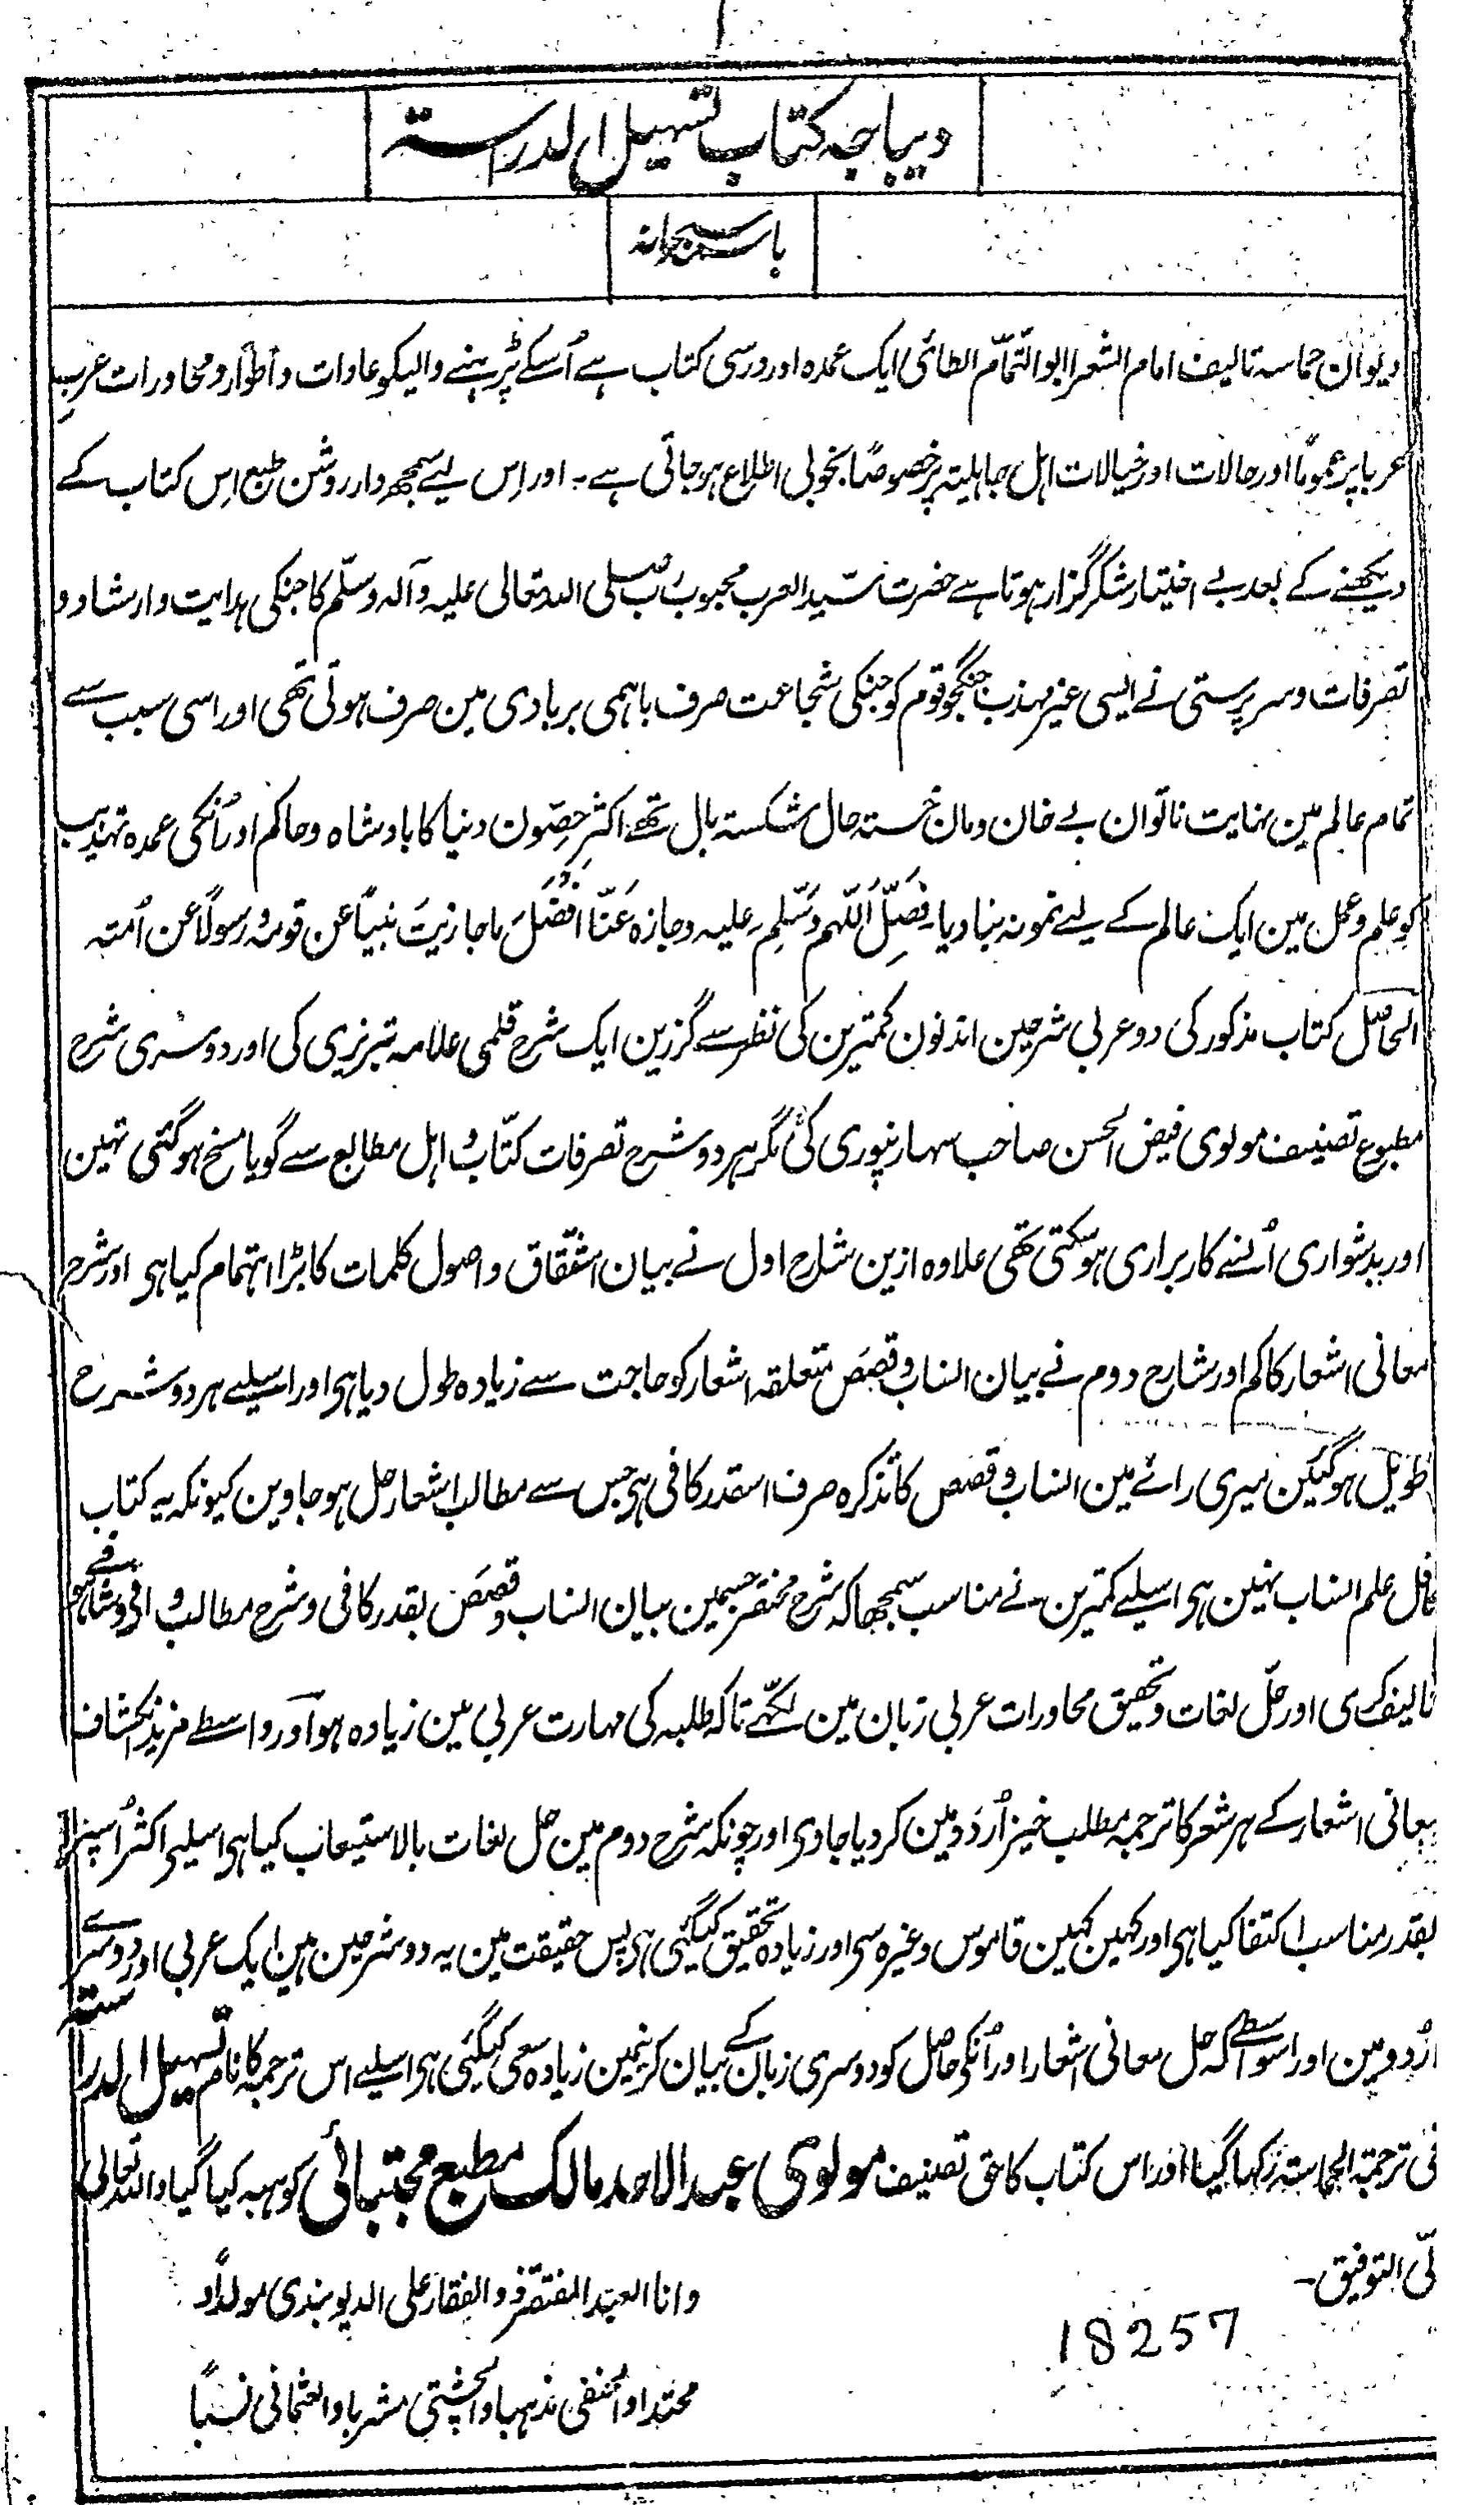 دیباجہ کتاب تسہیل الدراستہ
باسمہ سبحانہ
دیوان حماسہ تالیف امام الشعرا ابو التمّام الطائی ایک عمدہ اور درسی کتاب ہے اُسکے پڑہنے والیکو عادات و اطوار و محاورات عرب
عربا پر عموماً اور حالات اور خیالات اہل جاہلیتہ پر خصوصاً بخوبی اطلاع ہو جاتی ہے ۔ اور اِس لیے سمجھ دار روشن طبع اِس کتاب کے
دیکھنے کے بعد بے اختیار شکر گزار ہوتا ہے حضرت سیّد العرب محبوب رب صلی اللہ تعالی علیہ وآلہ وسلّم کا جنکی ہدایت و ارشاد و
تصرفات و سرپرستی نے ایسی غیر مہذب جنگجو قوم کو جنکی شجاعت صرف باہمی بربادی مین صرف ہوتی تھی اور اسی سبب سے
تمام عالم مین نہایت ناتوان بے خان و مان خستہ حال شکستہ بال تھے اکثر حِصّون دنیا کا بادشاہ و حاکم اور اُنکی عمدہ تہذیب
کو علم و عمل مین ایک عالم کے لیے نمونہ بنا دیا فَصَلِّ اَللّٰہم وَسَلِّم علیہ وجازہ عَنّا افضَلَ ما جازیتَ نبیاً عن قومہٖ ورسولاً عن اُمتہ
الحاصل کتاب مذکور کی دو عربی شرحین اندنون کمترین کی نظر سے گزرین ایک شرح قلمی علامہ تبریزی کی اور دوسری شرح
مطبوع تصنیف مولوی فیض الحسن صاحب سہارنپوری کی مگر ہر دو شرح تصرفات کتّاب و اہل مطابع سے گویا مسخ ہوگئی تہین
اور بدشواری اُنسے کاربراری ہوسکتی تھی علاوہ ازین شارح اول نے بیان اشتقاق و اصول کلمات کا بڑا اہتمام کیا ہی اور شرح
معانی اشعار کا کم اور شارح دوم نے بیان انساب و قصص متعلقہ اشعار کو حاجت سے زیادہ طول دیا ہی اور اسیلیے ہر دو شرح
طویل ہوگئین میری رائے مین انساب و قصص کا تذکرہ صرف اسقدر کافی ہی جس سے مطالب اشعار حل ہو جاوین کیونکہ یہ کتاب
علم انساب نہین ہی اسیلیے کمترین نے مناسب سمجھا کہ شرح مختصر جسمین بیان انساب و قصص بقدر کافی و شرح مطالب وافی و شافی ہو
تالیف کری اور حلّ لغات و تحقیق محاورات عربی زبان مین لکہے تاکہ طلبہ کی مہارت عربی مین زیادہ ہو اور واسطے مزید انکشاف
معانی اشعار کے ہر شعر کا ترجمہ مطلب خیز اُردو مین کردیا جاوی اور چونکہ شرح دوم مین حل لغات بالاستیعاب کیا ہی اسلیے اکثر اُسپر
بقدر مناسب اکتفا کیا ہی اور کہین کہین قاموس وغیرہ سی اور زیادہ تحقیق کیگئی ہی پس حقیقت مین یہ دو شرحین ہین ایک عربی اور دوسرے
اُردو مین اور اسواسطے کہ حل معانی اشعار اور اُنکی حاصل کو دوسری زبان کے بیان کرنیمین زیادہ سعی کیگئی ہی اسلیے اس ترجمہ کا نام تسہیل الدراستہ
فی ترجمۃ الحماستہ رکہا گیا اور اس کتاب کا حق تصنیف مولوی عبد الاحد مالک مطبع مجتبائی کو ہبہ کیا گیا واللہ تعالی
ولی التوفیق۔
وانا العبد المفتقر ذو الفقار علی الدیوبندی مولداً و
محتدا والحنفی مذہبا والچشتی مشربا والعثمانی نسباً
18257